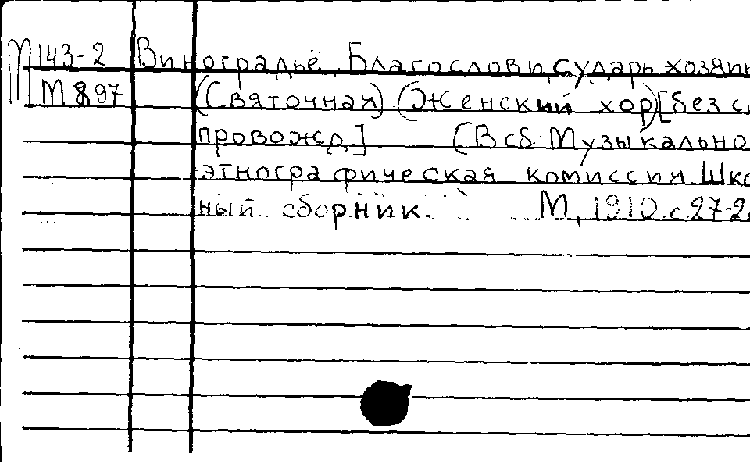 М143-2 Виноградьё. Благослови, сударь хозяин
М 897 (Святочная) (Женский хор) [без с
провожд.] [В сб: Музыкально
этнографическая комиссия. Шко
ный сборник. М, 1910. с 27-2